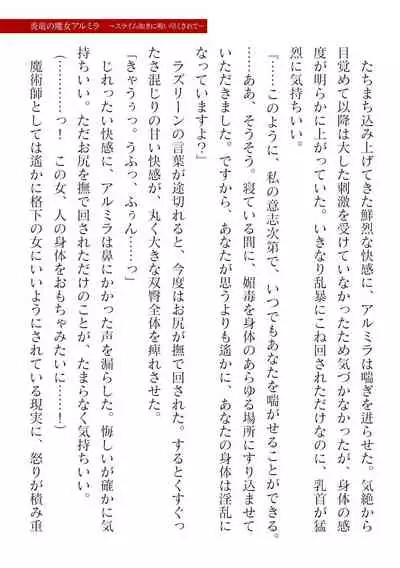 炎竜の魔女アルミラ　～スライム如きに喰い尽くされて～
たちまち込み上げてきた鮮烈な快感に、アルミラは喘ぎを迸らせた。気絶から
目覚めて以降は大した刺激を受けていなかったため気づかなかったが、身体の感
度が明らかに上がっていた。いきなり乱暴にこね回されただけなのに、乳首が猛
烈に気持ちいい。
『……このように、私の意志次第で、いつでもあなたを喘がせることができる。
……ああ、そうそう。寝ている間に、媚毒を身体のあらゆる場所にすり込ませて
いただきました。ですから、あなたが思うよりも遙かに、あなたの身体は淫乱に
なっていますよ？』
ラズリーンの言葉が途切れると、今度はお尻が撫で回された。するとくすぐっ
たさ混じりの甘い快感が、丸く大きな双臀全体を痺れさせた。
「きゃうぅっ。うふっ、ふぅん……っ」
じれったい快感に、アルミラは鼻にかかった声を漏らした。悔しいが確かに気
持ちいい。ただお尻を撫で回されただけのことが、たまらなく気持ちいい。
（………っ！　この女、人の身体をおもちゃみたいに……！）
魔術師としては遙かに格下の女にいいようにされている現実に、怒りが積み重